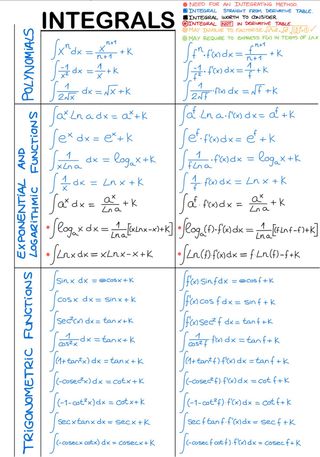 INTEGRALS
NEED FOR AN INTEGRATING METHOD
INTEGRAL STRAIGHT FROM DERIVATIVE TABLE
INTEGRAL WORTH TO CONSIDER
INTEGRAL NOT IN DERIVATIVE TABLE
MAY REQUIRE TO EXPRESS f(x) IN TERMS OF Ln x
POLYNOMIALS
∫xⁿ dx = xⁿ⁺¹/n+1 + K
∫fⁿ · f'(x) dx = fⁿ⁺¹/n+1 + K
∫-1/x² dx = 1/x + K
∫-1/f² · f'(x) dx = 1/f + K
∫1/2√x dx = √x + K
∫1/2√f · f'(x) dx = √f + K
EXPONENTIAL AND LOGARITHMIC FUNCTIONS
∫aˣ Ln a dx = aˣ + K
∫aᶠ Ln a · f'(x) dx = aᶠ + K
∫eˣ dx = eˣ + K
∫eᶠ · f'(x) dx = eᶠ + K
∫1/xLna dx = logₐx + K
∫1/fLna · f'(x) dx = logₐx + K
∫1/x dx = Lnx + K
∫1/f · f'(x) dx = Lnx + K
∫aˣ dx = aˣ/Lna + K
∫aᶠ · f'(x) dx = aˣ/Lna + K
∫logₐx dx = 1/Lna [xLnx-x)+K]
∫logₐ(f) · f'(x) dx = 1/Lna [(fLnf-f)+K]
∫Lnx dx = xLnx-x+K
∫Ln(f) · f'(x) dx = f Ln(f)-f+K
TRIGONOMETRIC FUNCTIONS
∫sinx dx = -cosx+K
∫f'(x) sin f dx = -cos f+K
∫cosx dx = sinx+K
∫f'(x) cos f dx = sin f+K
∫sec²(x) dx = tanx+K
∫f'(x) sec² f dx = tan f+K
∫1/cos²x dx = tanx+K
∫1/cos²f f'(x) dx = tan f+K
∫(1+tan²x) dx = tanx+K
∫(1+tan²f) f'(x) dx = tan f+K
∫(-cosec²x) dx = cotx+K
∫(-cosec²f) f'(x) dx = cot f+K
∫(-1-cot²x) dx = cotx+K
∫(-1-cot²f) f'(x) dx = cot f+K
∫secx tanx dx = secx+K
∫sec f tan f f'(x) dx = sec f+K
∫(-cosecx cotx) dx = cosecx+K
∫(-cosec f cot f) f'(x) dx = cosec f+K